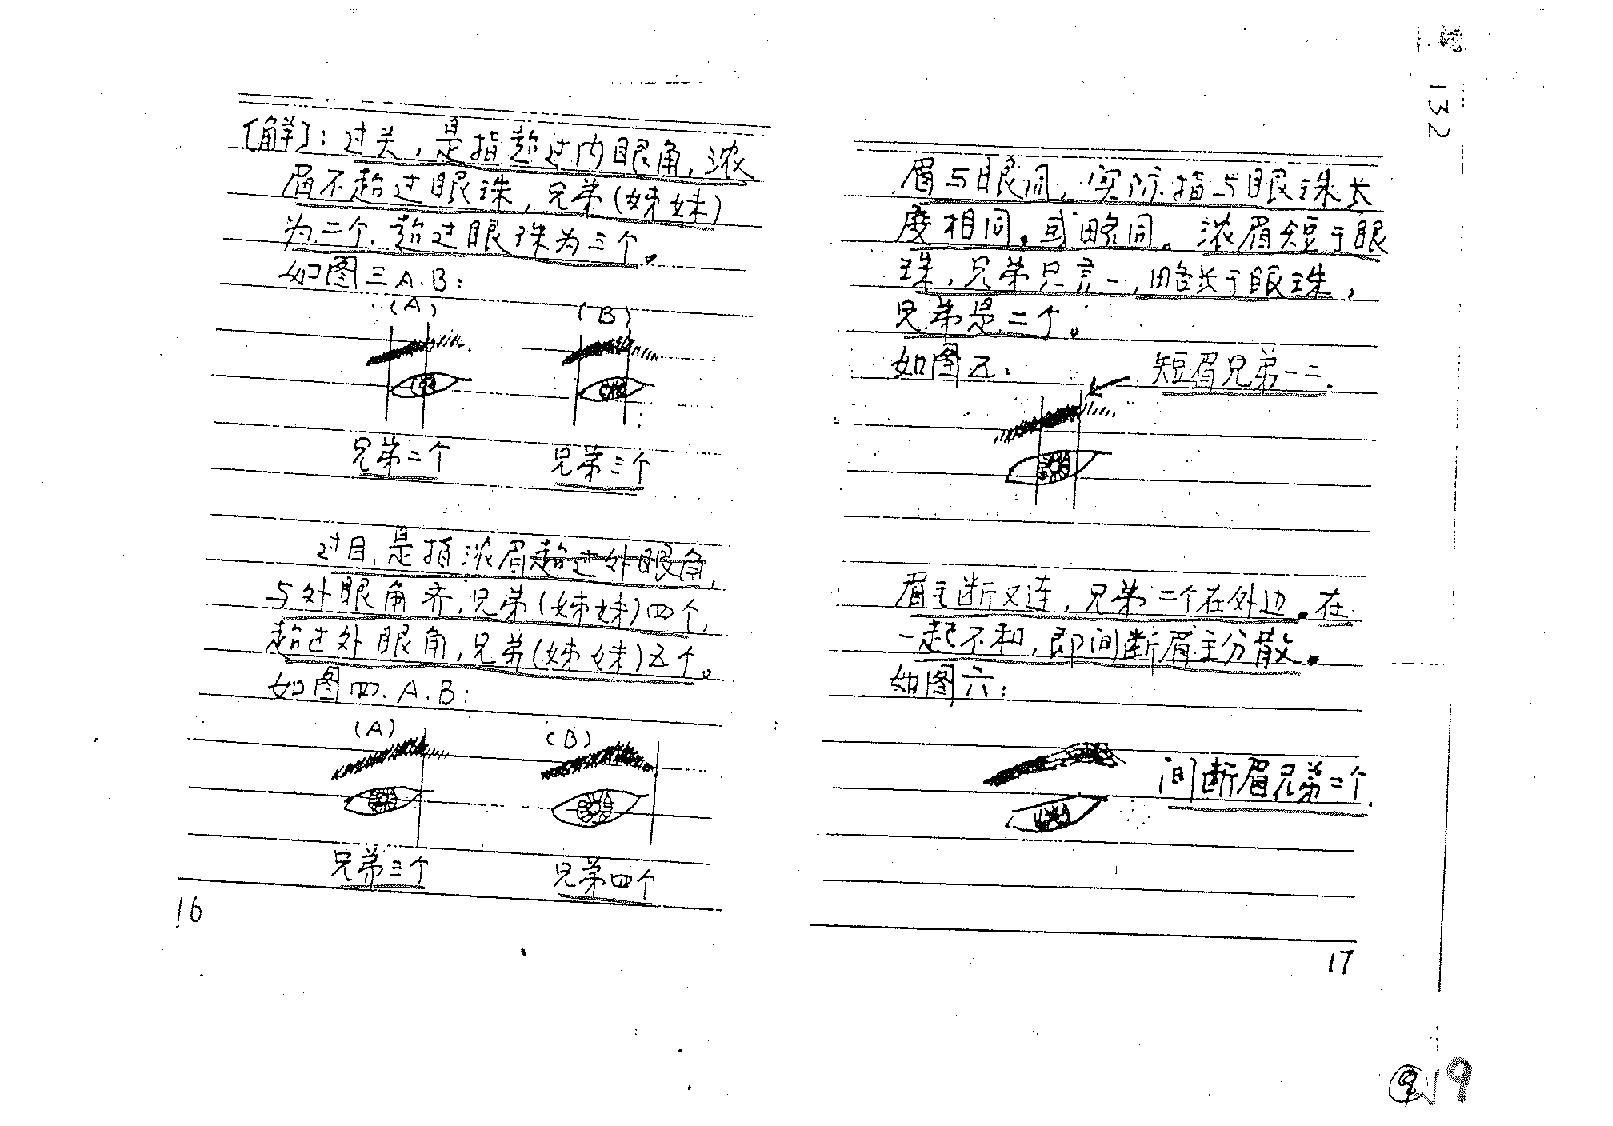 〔解〕：过关，是指超过内眼角，浓
眉不超过眼珠，兄弟（姊妹）
为二个，超过眼珠为三个。
如图三A.B：
（A）
（B）
兄弟二个
兄弟三个
过目，是指浓眉超过外眼角，
与外眼角齐，兄弟（姊妹）四个，
超过外眼角，兄弟（姊妹）五个。
如图四.A.B：
（A）
（B）
兄弟三个
兄弟四个
16
眉与眼同，实际指与眼珠长
度相同，或略同。浓眉短于眼
珠，兄弟只言一，略长于眼珠，
兄弟是二个。
如图五：
短眉兄弟一二.
眉毛断又连，兄弟二个在外边。在
一起不和，即间断眉主分散。
如图六：
间断眉兄弟二个.
17
132
9
19